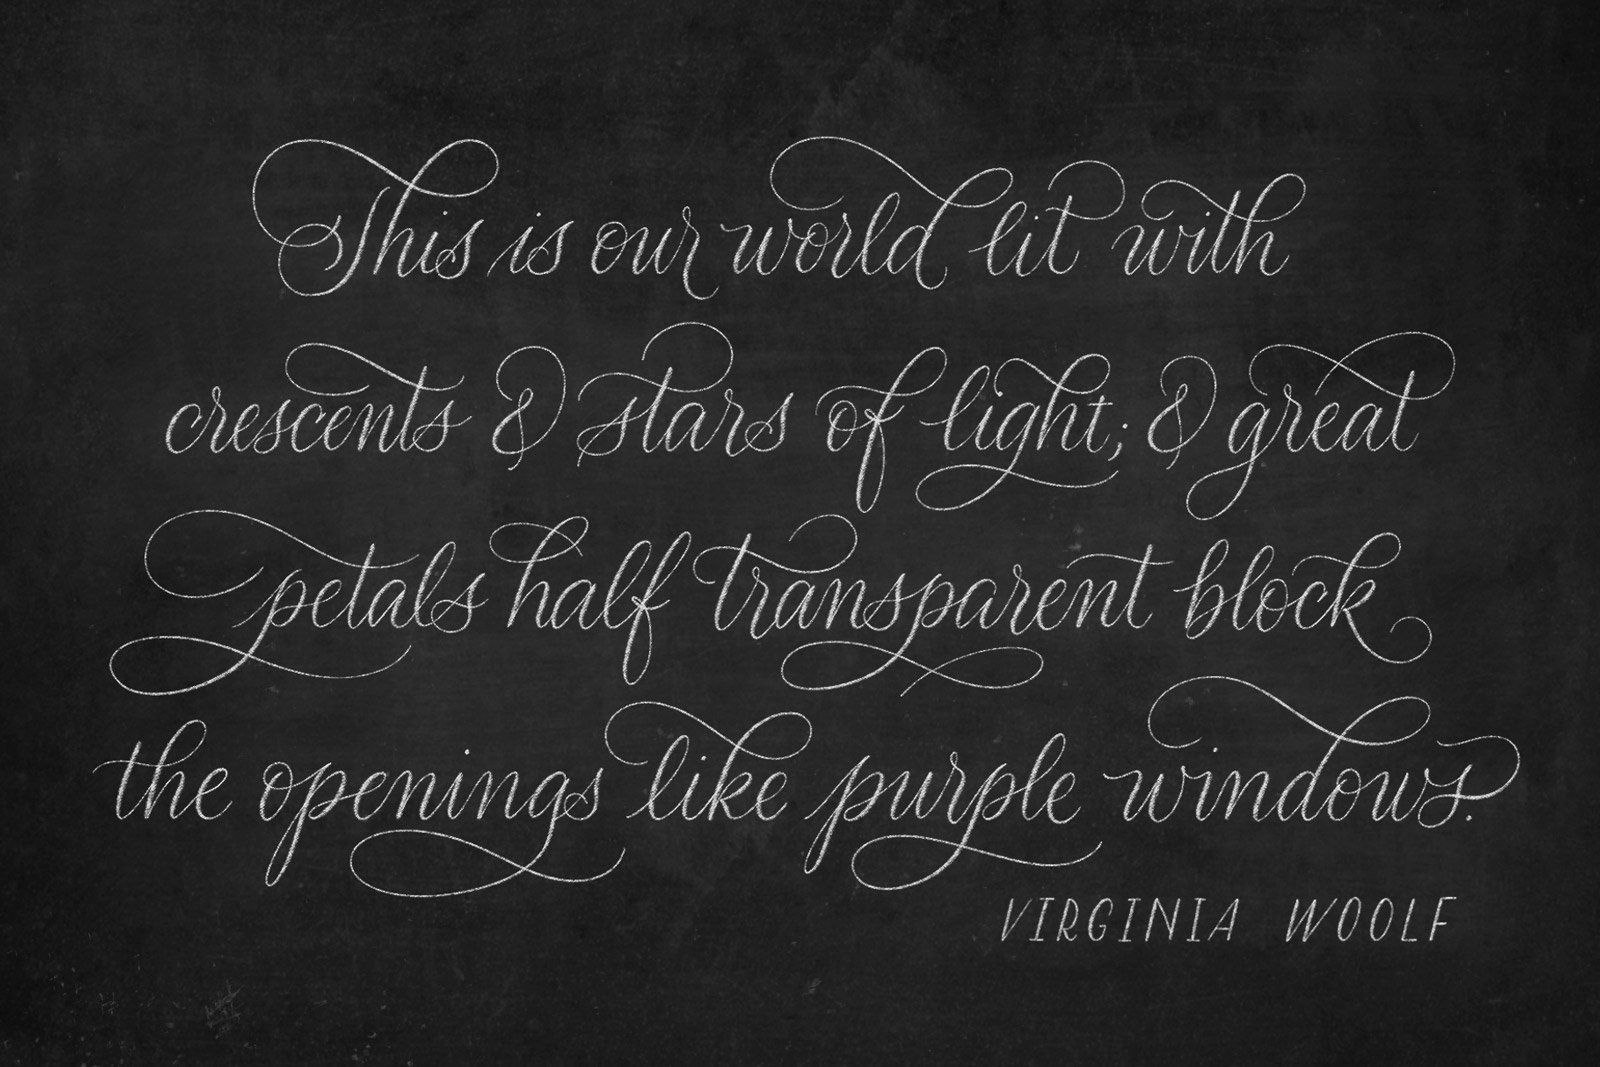 This is our world lit with
crescents & stars of light; & great
petals half transparent block
the openings like purple windows.
VIRGINIA WOOLF